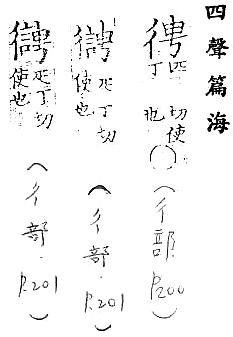 四聲篇海
匹丁切使也
(彳部 P.200)
匹丁切
使也
(彳部 P.201)
匹丁切
使也
(彳部 P.201)